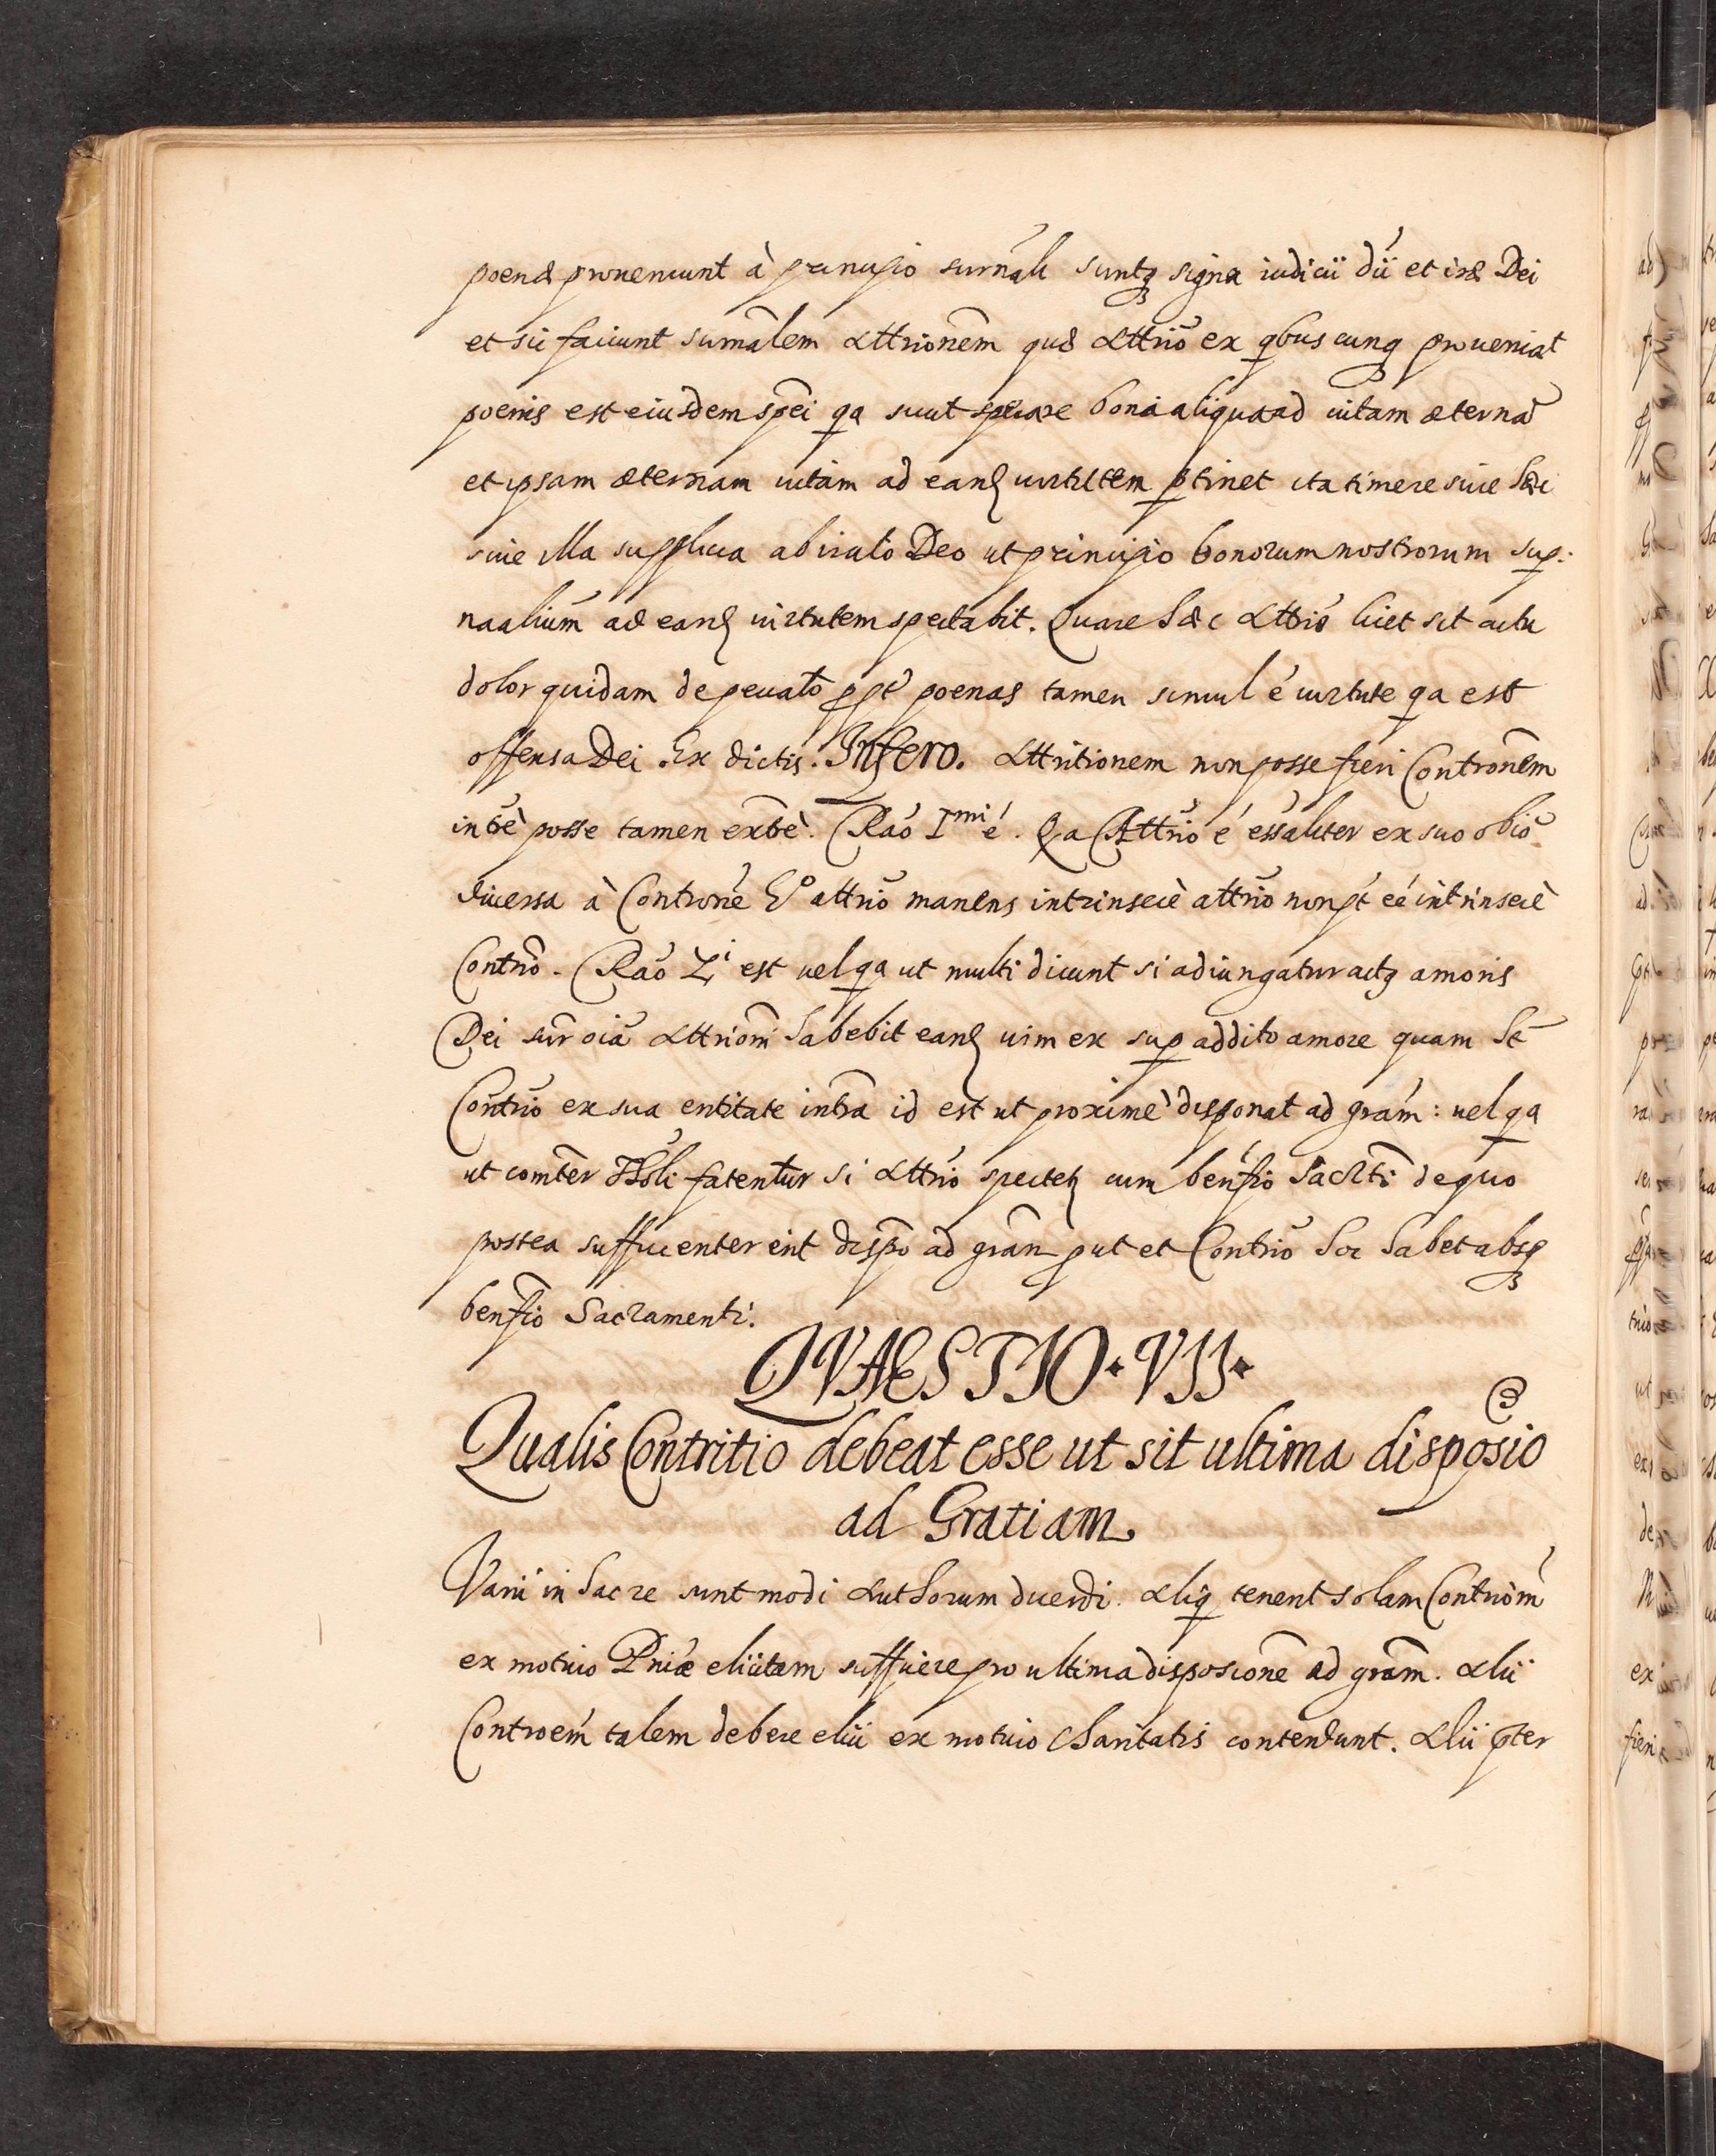 poenæ proueniunt à principio surnãli suntq; signa iudicii dii et iræ Dei
et sic faciunt surnãlem Attrionẽm quæ Attriõ ex qbuscunq; proueniat
poenis est eiusdem spẽi qa sicut sperare bona aliqua ad uitam æternã
et ipsam æternam uitam ad eand uirtutem ptinet ita timere siue hæc
siue illa supplicia ab irato Deo ut principio bonorum nostrorum sup:
naaliũm ad eand uirtutem spectabit. Quare hæc Attriõ licet sit actu
dolor quidam de peccatõ ppt poenas tamen simul é uirtute qa est
offensa Dei. Ex dictis. Infero. Attritionem non posse fieri Contronẽm
intẽ posse tamen extẽ. Raõ Imi é. Qa Attriõ é essãliter ex suo obiõ
diuersa à Contrioné Eº attriõ manens intrinsecè attriõ non pt eé intrinsecè
Contriõ. Raõ 2i est uel qa ut multi dicunt si adiungatur actq amoris
Dei sũr oiã Attriõm habebit eand uim ex sup addito amore quam ht
Contriõ ex sua entitate intrã id est ut proximè disponat ad grãm: uel qa
ut comtẽr Thõli fatentur si Attriõ spectetz cum benfiõ Sacrti de quo
postea sufficienter erit dispõ ad grãm put et Contriõ hoc habet absq;
benfiõ Sacramenti.
QVAESTIO · VII ·
Qualis Contritio debeat esse ut sit ultima disposio
ad Gratiam.
Varii in hac re sunt modi Authorum dicendi. Aliq tenent solam Contriõm
ex motiuo Pniæ elicitam sufficere pro ultima disposionẽ ad grãm. Alii
Contrioẽm talem debere elici ex motiuo Charitatis contendunt. Alii pter